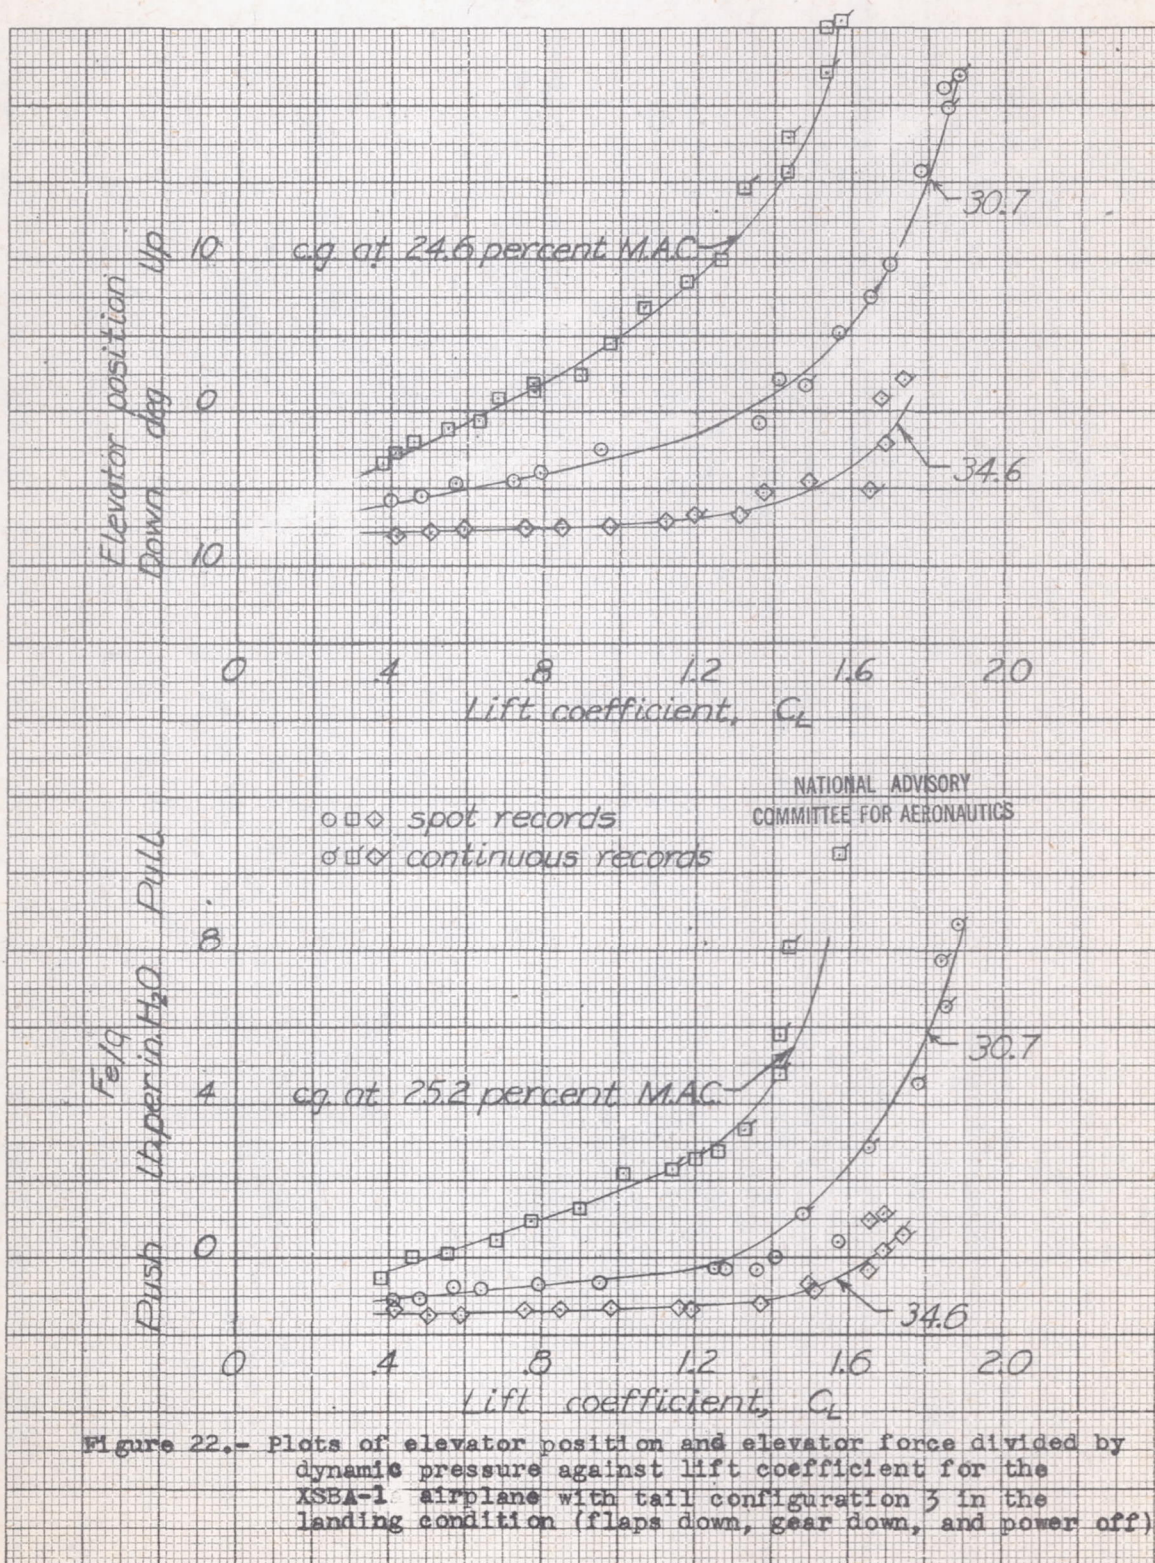 Up
10
c.g. at 24.6 percent M.A.C.
30.7
Elevator position
deg
0
34.6
Down
10
0 .4 .8 1.2 1.6 2.0
Lift coefficient, CL
NATIONAL ADVISORY
COMMITTEE FOR AERONAUTICS
○□◇ spot records
continuous records
Pull
8
Fe/q
lb per in. H2O
30.7
4
c.g. at 25.2 percent M.A.C.
0
Push
34.6
0 .4 .8 1.2 1.6 2.0
Lift coefficient, CL
Figure 22.- Plots of elevator position and elevator force divided by
dynamic pressure against lift coefficient for the
XSBA-1 airplane with tail configuration 3 in the
landing condition (flaps down, gear down, and power off)